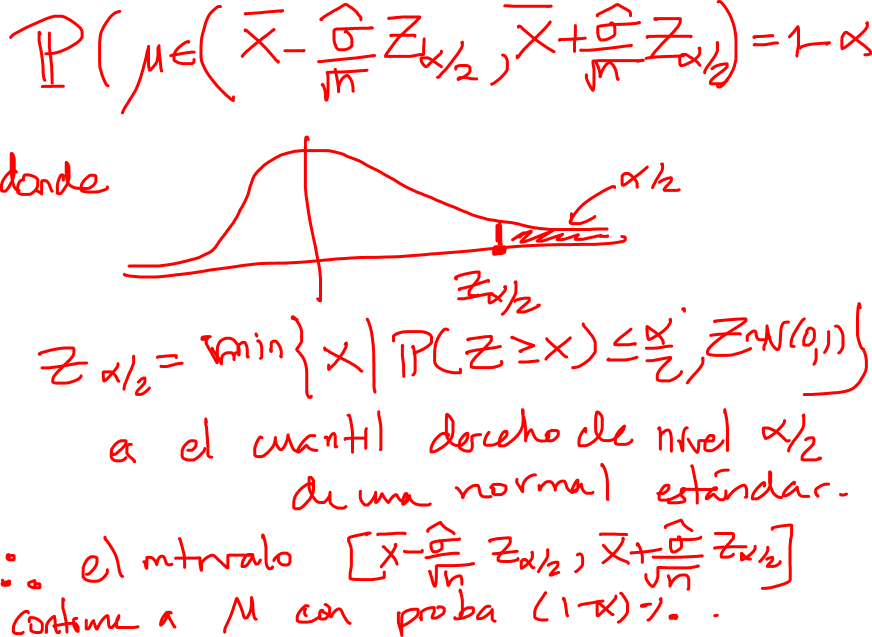 ℙ(μ∈(X̄ - σ̂/√n Z_{α/2}, X̄ + σ̂/√n Z_{α/2})) = 1-α
donde
α/2
Z_{α/2}
Z_{α/2} = min{x | ℙ(Z ≥ x) ≤ α/2, Z~N(0,1)}
es el cuantil derecho de nivel α/2
de una normal estándar.
∴ el intervalo [X̄ - σ̂/√n Z_{α/2}, X̄ + σ̂/√n Z_{α/2}]
contiene a μ con proba (1-α)%.